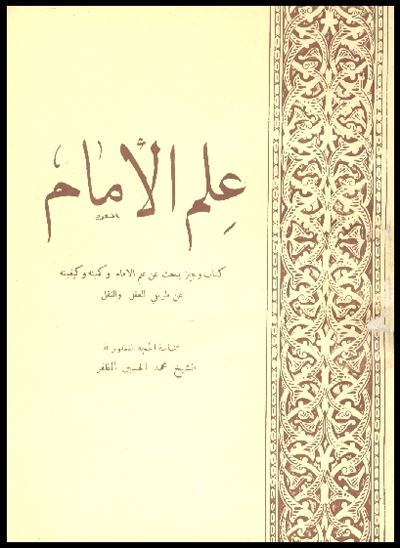 علم الإمام
كتاب وجيز يبحث عن علم الامام وكميته وكيفيته
عن طريقي العقل والنقل
سماحة الحجة المغفور له
الشيخ محمد الحسين المظفر